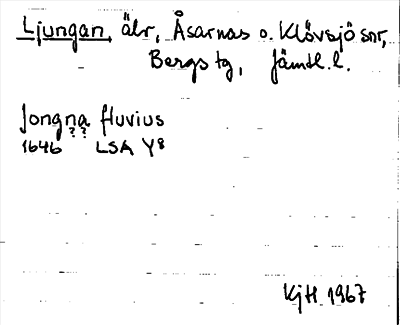 Ljungan, älv, Åsarnas o. Klövsjö snr,
Bergs tg, Jämtl. l.
Jongna fluvius
? ?
1646 LSA Y8
KjH 1967